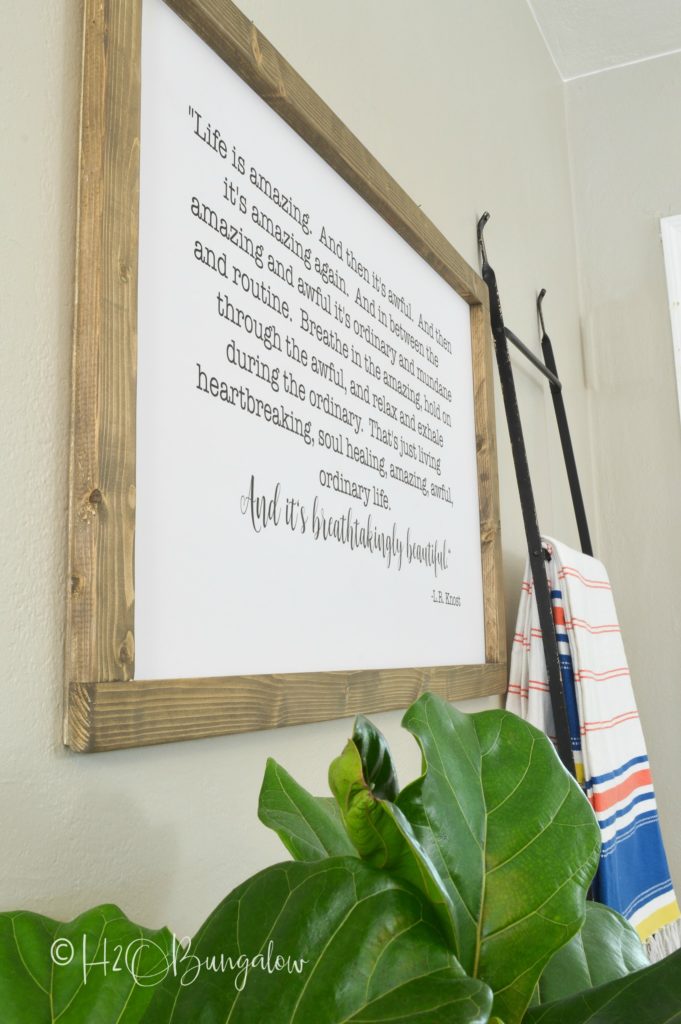 "Life is amazing. And then it's awful. And then
it's amazing again. And in between the
amazing and awful it's ordinary and mundane
and routine. Breathe in the amazing, hold on
through the awful, and relax and exhale
during the ordinary. That's just living
heartbreaking, soul healing, amazing, awful,
ordinary life.
And it's breathtakingly beautiful."
-L.R. Knost
©H2OBungalow